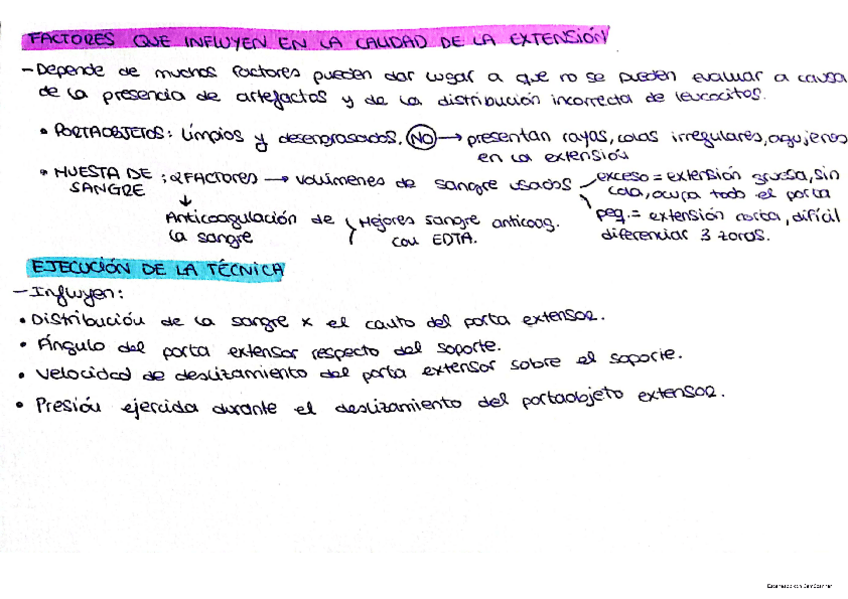 FACTORES QUE INFLUYEN EN LA CALIDAD DE LA EXTENSIÓN
- Depende de muchos factores pueden dar lugar a que no se pueden evaluar a causa
de la presencia de artefactos y de la distribución incorrecta de leucocitos.
• PORTAOBJETOS: Límpios y desengrasados. NO → presentan rayas, colas irregulares, agujeros
en la extensión
• MUESTA DE SANGRE : 2 FACTORES → volúmenes de sangre usados
exceso = extensión gruesa, sin
cola, ocupa todo el porta
peq. = extensión corta, difícil
diferenciar 3 zonas.
↓
Anticoagulación de
la sangre
Mejores sangre anticoag.
con EDTA.
EJECUCIÓN DE LA TÉCNICA
- Influyen:
• Distribución de la sangre x el canto del porta extensor.
• Ángulo del porta extensor respecto del soporte.
• Velocidad de deslizamiento del porta extensor sobre el soporte.
• Presión ejercida durante el deslizamiento del portaobjeto extensor.
Escaneado con CamScanner